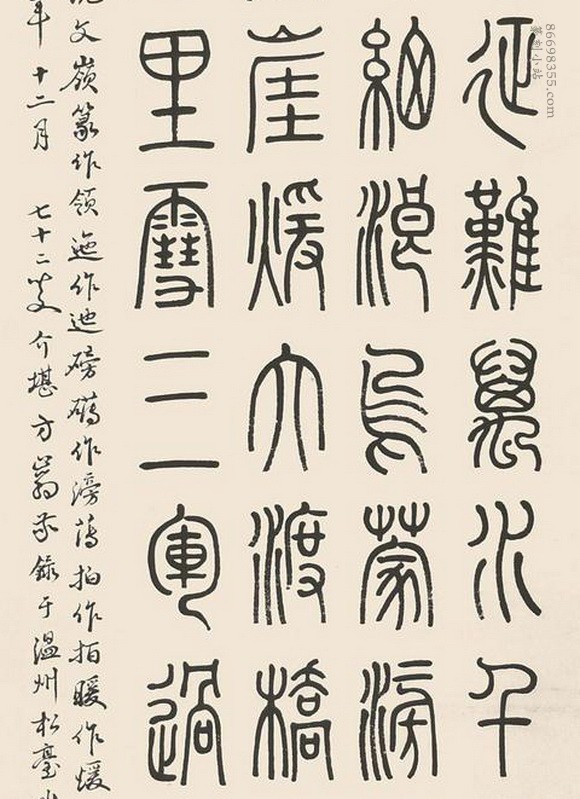 征難萬水千
細浪烏蒙滂
崖煖大渡橋
里雪三軍過
文嶺篆作領迤作迆磅礴作滂薄拍作暖作煖
年十二月 七十二叟介堪方錄于温州松臺
86698355.com
篆刻小站